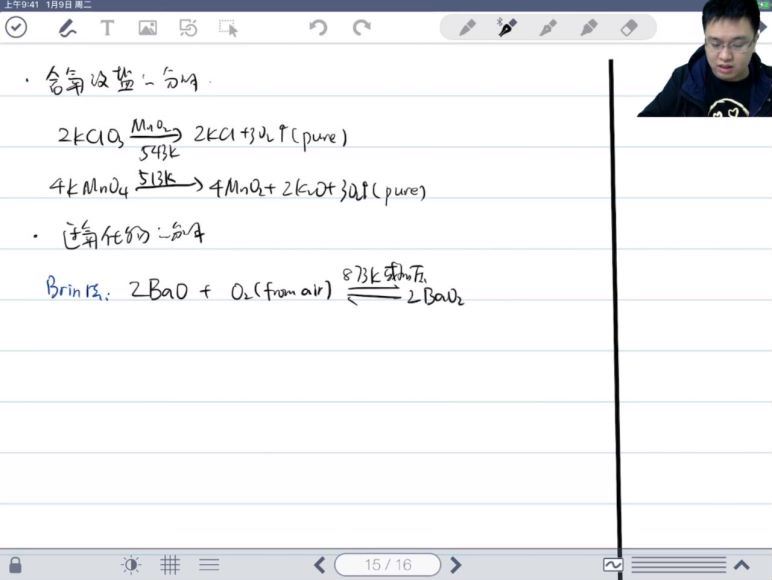 上午9:41 1月9日 周二
· 含氧酸盐之分解
2KClO₃ MnO₂ 543K → 2KCl+3O₂↑(pure)
4KMnO₄ 513K → 4MnO₂+2K₂O+3O₂↑(pure)
· 过氧化物之分解
Brin法: 2BaO + O₂(from air) 873K或加压 ⇌ 2BaO₂
15 / 16